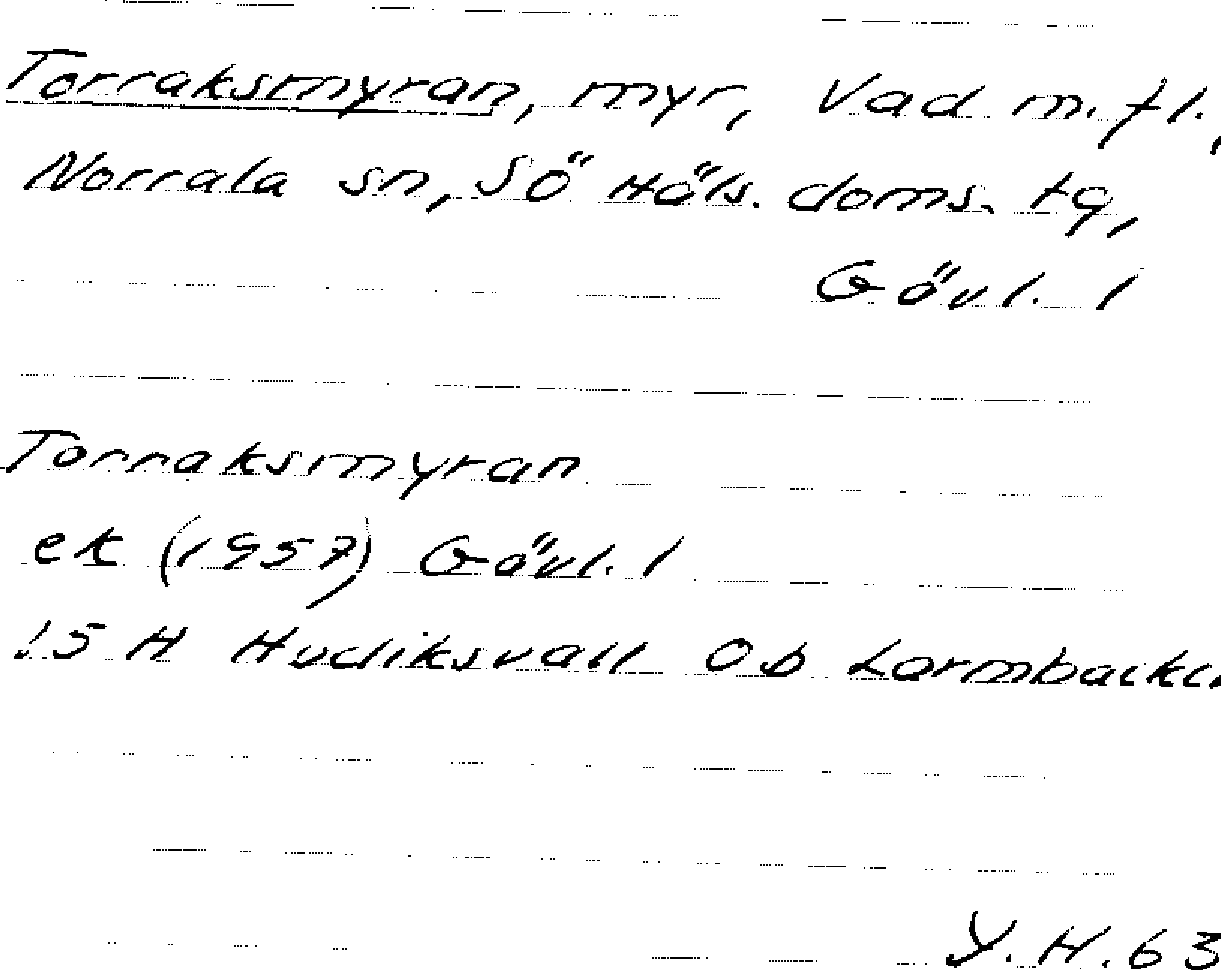 Torraksmyran, myr, Vad m.fl.,
Norrala sn, Sö Häls. doms. tg,
Gävl. l
Torraksmyran
ek (1957) Gävl. l
15 H Hudiksvall 0b
Y.H.63